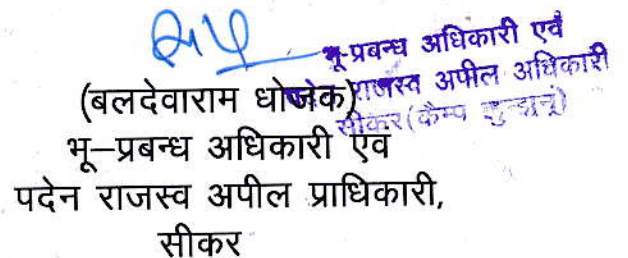 भू-प्रबन्ध अधिकारी एवं
राजस्व अपील अधिकारी
सीकर (कैम्प झुन्झुनूं)
(बलदेवाराम धोजक)
भू–प्रबन्ध अधिकारी एवं
पदेन राजस्व अपील प्राधिकारी,
सीकर